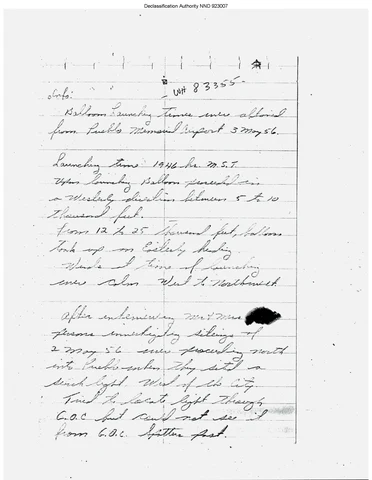 Declassification Authority NND 923007
WH 83355
Info:
Balloon Launching times were obtained
from Pueblo Memorial Airport 3 May 56.
Launching time: 1946 hr. M.S.T
Upon launching Balloon proceeded in
a Westerly direction between 5 to 10
thousand feet.
From 12 to 25 thousand feet, balloon
took up an Easterly heading
Winds at time of launching
were calm West to Northwest
After interviewing Mr & Mrs
persons investigating sitings of
2 May 56 were proceeding north
into Pueblo when they sited a
serch light West of the city.
Tried to locate light through
G.O.C but could not see it
from G.O.C. Spotter post.